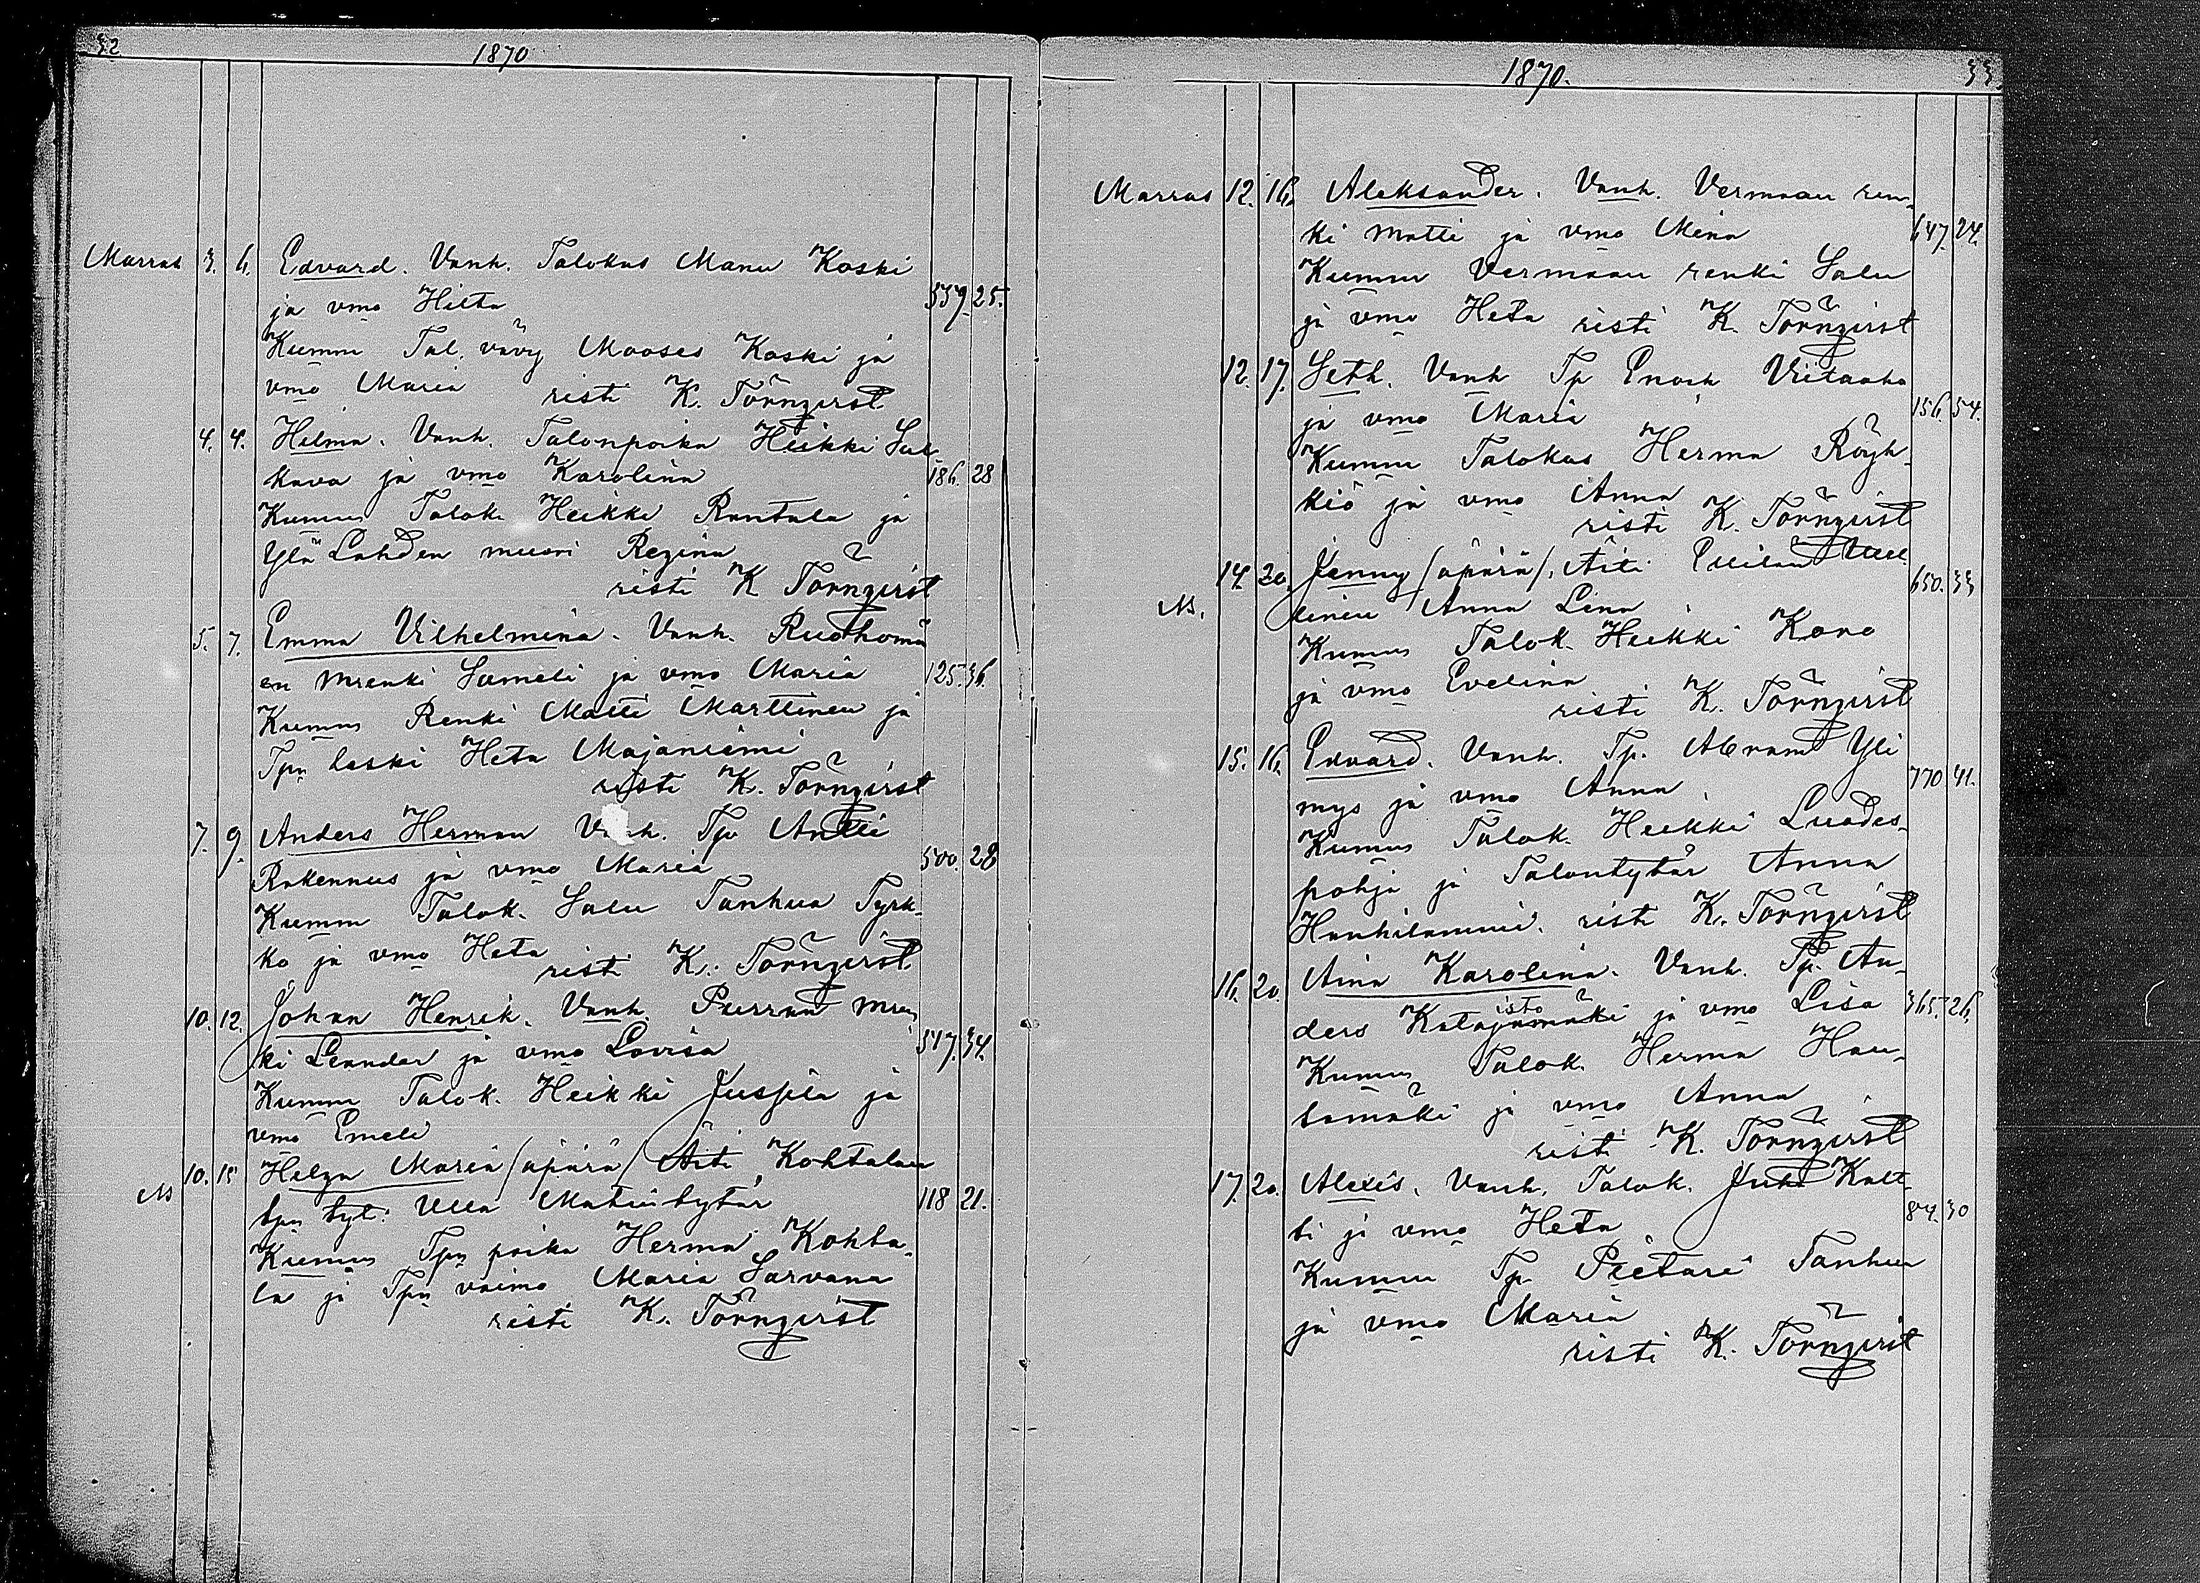 32 1870
Marras 3. 6. Edvard. Vanh. Talokas Manu Koski
ja vmo Hilta 559. 25.
Kummi Tal. vävy Mooses Koski ja
vmo Maria risti K. Törnqvist
4. 4. Hilma. Vanh. Talonpoika Heikki Sal
kava ja vmo Karolina 186. 28
Kummi Talok. Heikki Rantala ja
Ylä Lahden muori Regina
risti K Törnqvist
5. 7. Emma Vilhelmina. Vanh. Ruohomä
en mrenki Sameli ja vmo Maria 125. 36.
Kummi Renki Matti Marttinen ja
Tpn leski Heta Majaniemi
risti K. Törnqvist
7. 9. Anders Herman Vanh. Tp Antti
Rakennus ja vmo Maria 500. 28
Kummi Talok. Salu Tanhua Tyrk-
kö ja vmo Heta
risti K. Törnqvist
10. 12. Johan Henrik. Vanh. Purran mren
ki Leander ja vmo Lovisa 517. 34.
Kummi Talok. Heikki Jussila ja
vmo Emeli
N 10. 15 Helga Maria /äpärä/ Äiti Kohtalan
tpn tyt: Ulla Matintytär 118 21.
Kummi Tpn poika Herman Kohta-
la ja Tpn vaimo Maria Sarvana
risti K. Törnqvist
1870. 33
Marras 12. 16. Aleksander. Vanh. Vermaan ren-
ki Matti ja vmo Mina 647. 24.
Kummi Vermaan renki Salu
ja vmo Heta risti K. Törnqvist
12. 17. Seth. Vanh Tp Enoch Viitaaho
ja vmo Maria 156. 54.
Kummi Talokas Herman Röyh-
kiö ja vmo Anna
risti K. Törnqvist
N. 14. 20. Jenny /äpärä/. Äiti
linin Anna Lena 650. 33
Kummi Talok. Heikki Kono
ja vmo Evelina
risti K. Törnqvist
15. 16. Edvard. Vanh. Tp. Abram Yli
mys ja vmo Anna 770 41.
Kummi Talok. Heikki Luodes-
pohja ja Talontytär Anna
Hanhilammi. risti K. Törnqvist
16. 20. Aina Karolina. Vanh. Tp. An-
ders Katajistomäki ja vmo Lisa 365. 26.
Kummi Talok. Herman Hau-
tamäki ja vmo Anna
risti K. Törnqvist
17. 20. Alexis. Vanh. Talok. Juha Kalt
ti ja vmo Heta 84. 30
Kummi Tp. Pietari Tanhua
ja vmo Maria
risti K. Törnqvist